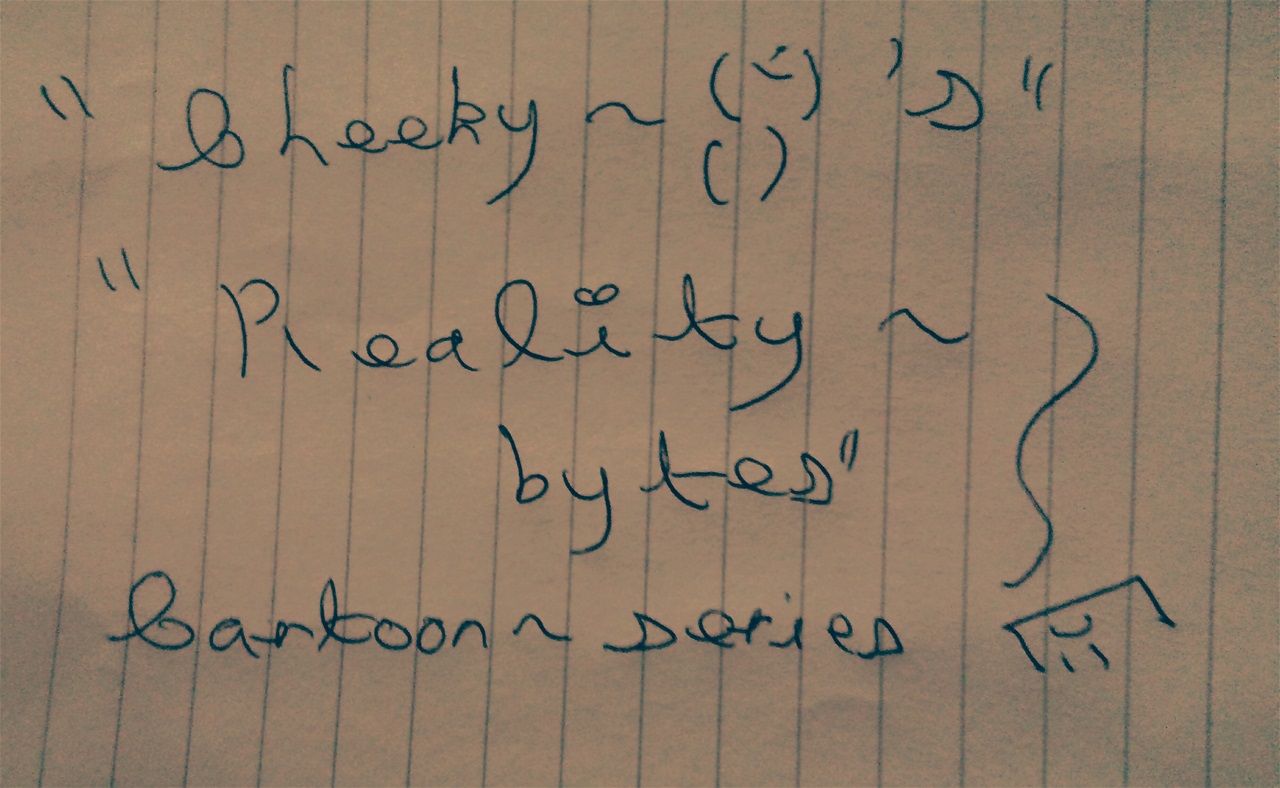 "Cheeky ~ 's"
"Reality ~
bytes"
Cartoon ~ series